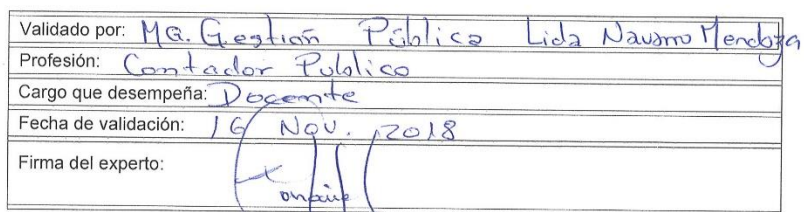 Validado por: MG. Gestión Pública Lida Navarro Mendoza
Profesión: Contador Publico
Cargo que desempeña: Docente
Fecha de validación: 16 Nov. 2018
Firma del experto: